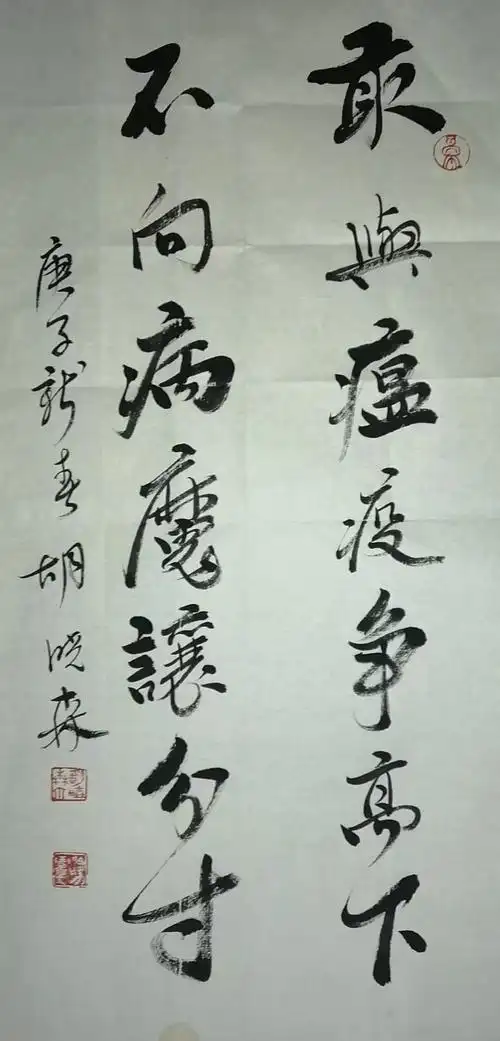 敢與瘟疫争高下
不向病魔讓分寸
庚子新春胡晓森